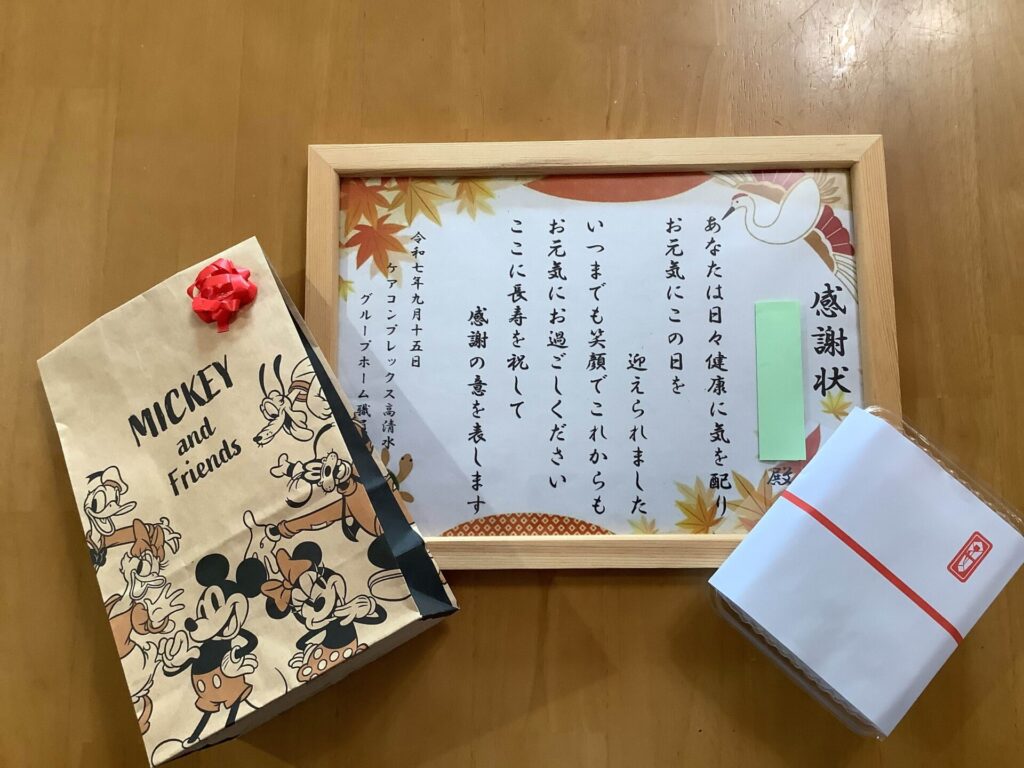 感謝状
殿
あなたは日々健康に気を配り
お元気にこの日を
迎えられました
いつまでも笑顔でこれからも
お元気にお過ごしください
ここに長寿を祝して
感謝の意を表します
令和七年九月十五日
ケアコンプレックス高清水
グループホーム職
MICKEY
and
Friends